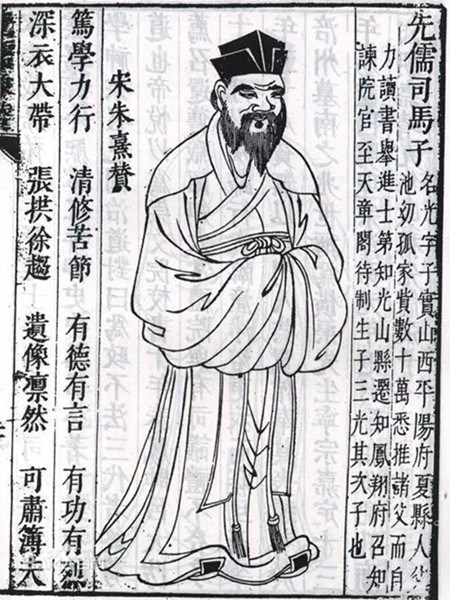 先儒司馬子
名光字子實山西平陽府夏縣人父
池幼孤家貲數十萬悉推諸父而自
力讀書舉進士第知光山縣遷知鳳翔府召知
諫院官至天章閣待制生子三光其次子也
宋朱熹贊
篤學力行 清修苦節 有德有言 有功有
深衣大帶 張拱徐趨 遺像凛然 可肅簿夫